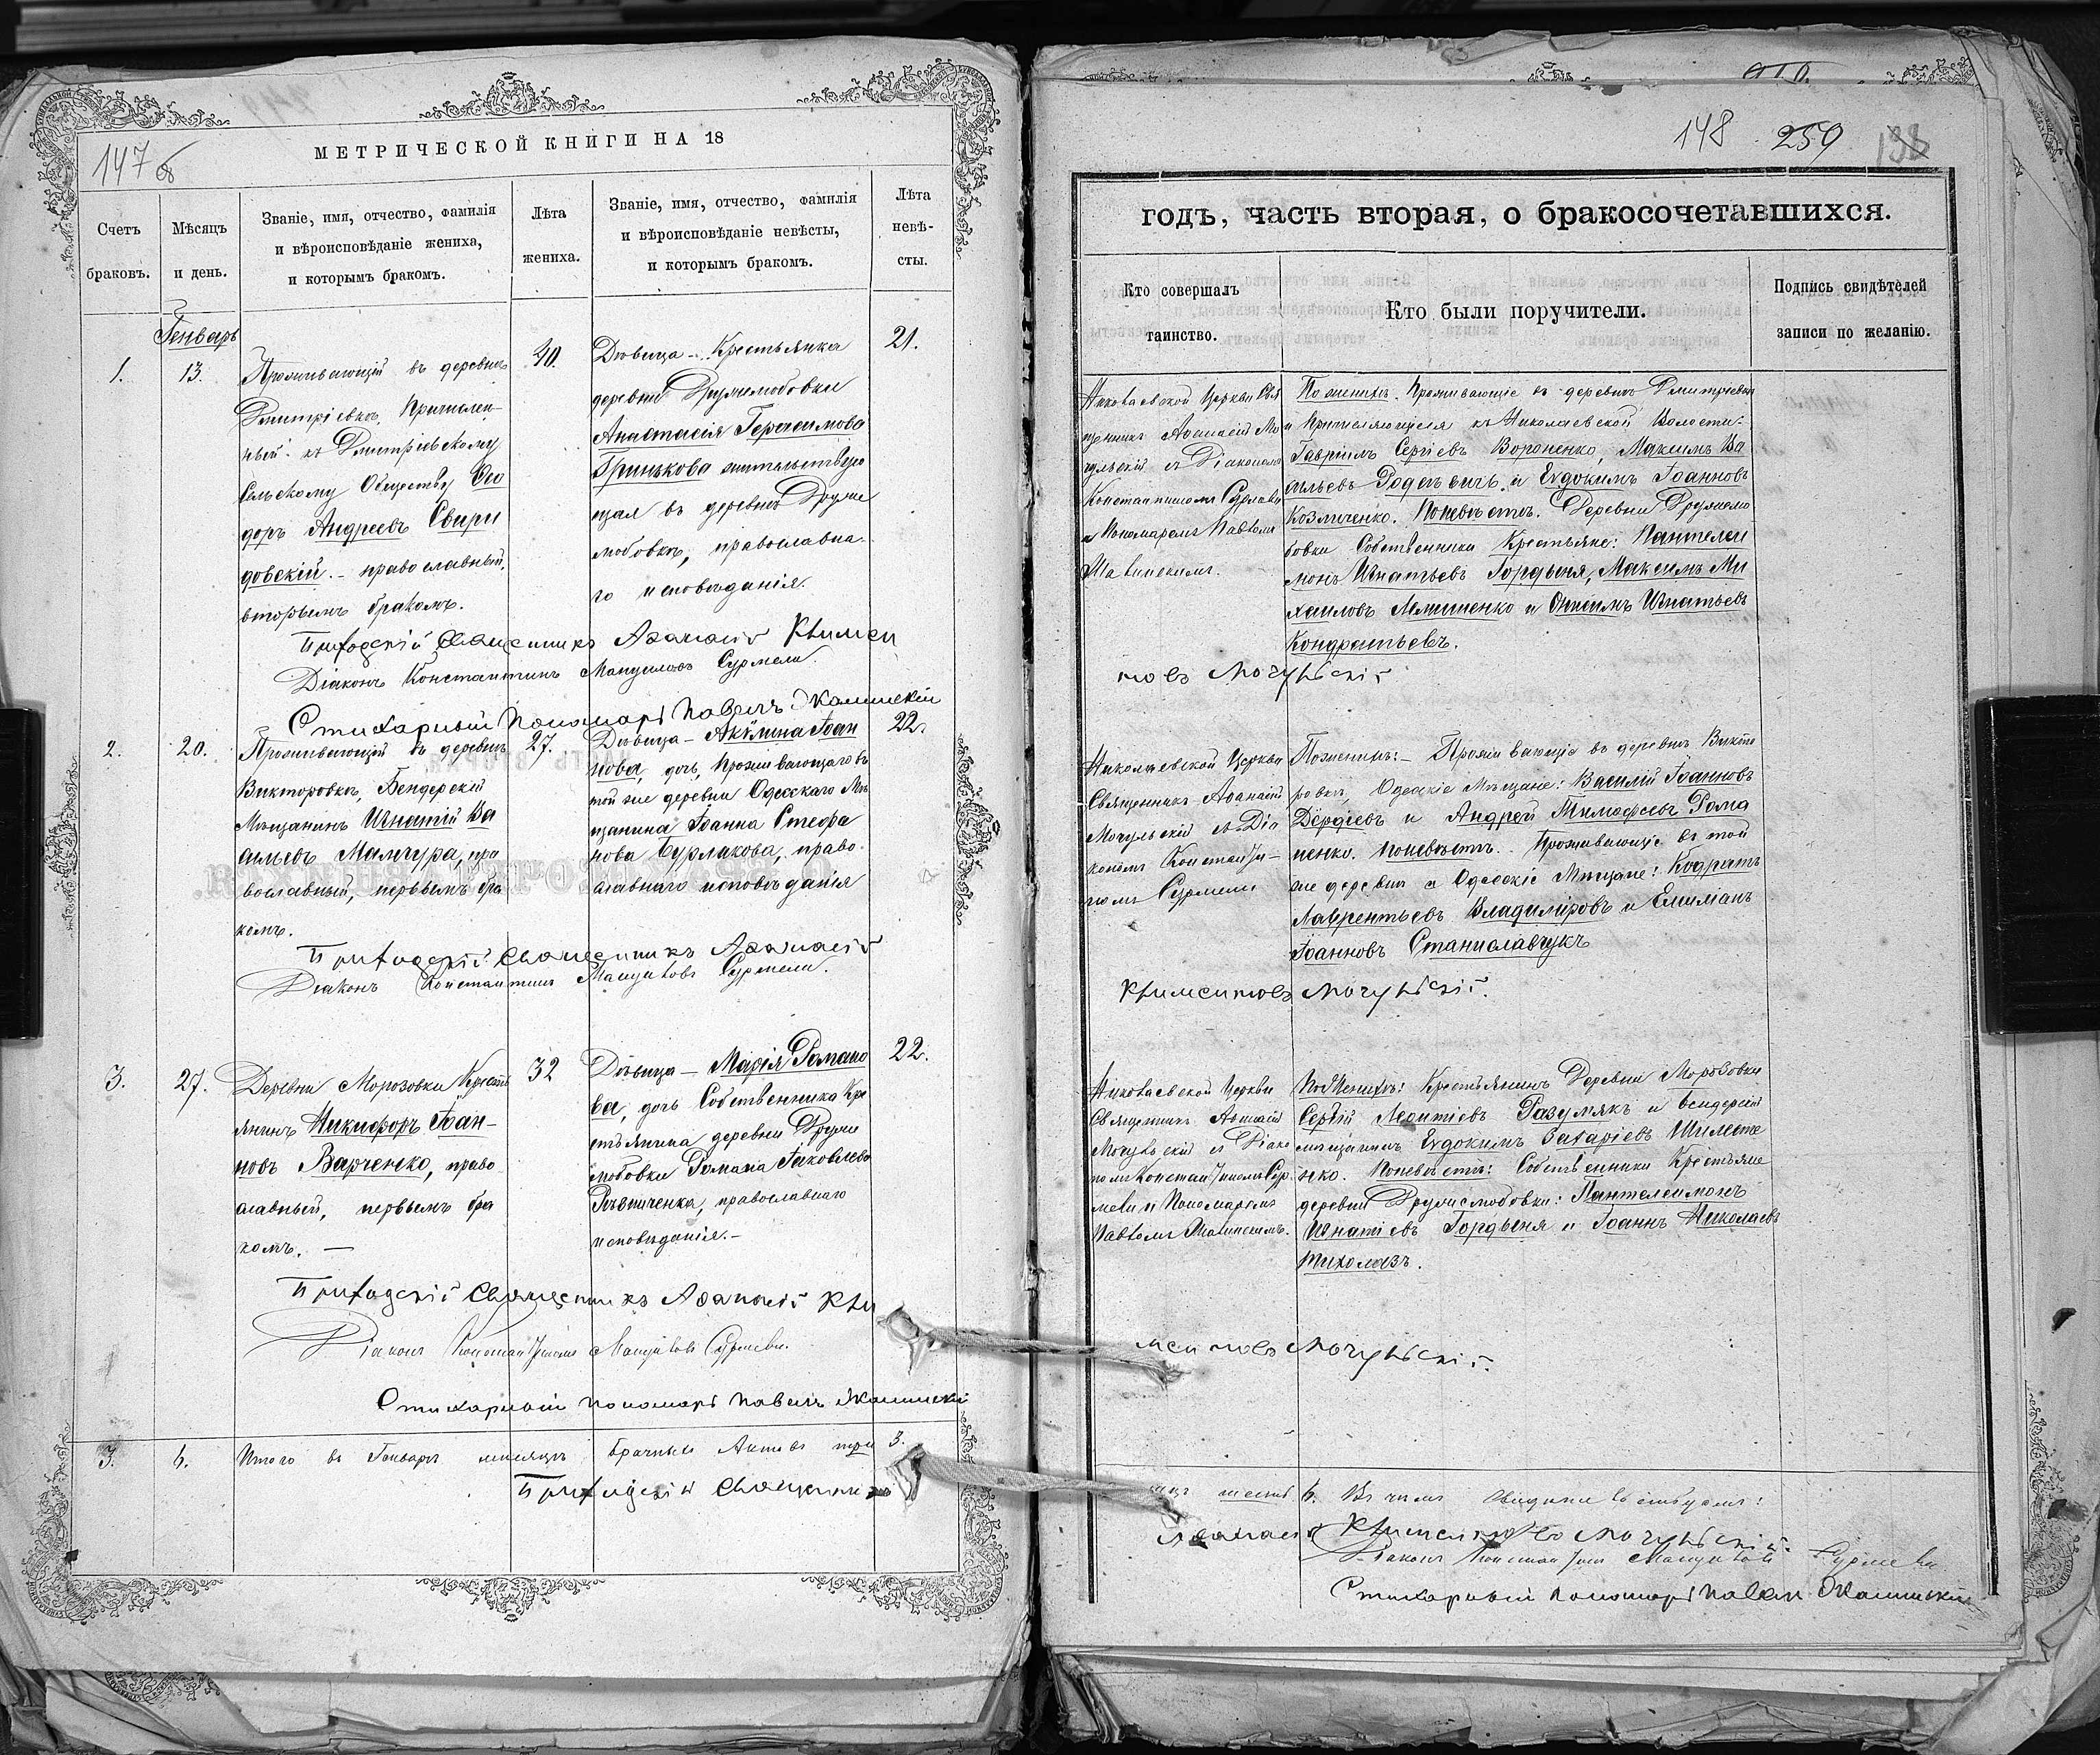 МЕТРИЧЕСКОЙ КНИГИ НА 18
147 об
Счетъ браковъ.
Мѣсяцъ и день.
Званіе, имя, отчество, фамилія
и вѣроисповѣданіе жениха,
и которымъ бракомъ.
Лѣта
жениха.
Званіе, имя, отчество, фамилія
и вѣроисповѣданіе невѣсты,
и которымъ бракомъ.
Лѣта
невѣ-
сты.
Генварь
1.
13.
Проживающій въ деревнѣ
Дмитріевкѣ, Причислен-
ный къ Дмитріевскому
Сельскому Обществу Си
доръ Андреевъ Свири
довскій. - православный,
вторымъ бракомъ.
40.
Дѣвица - Крестьянка
деревни Дружелюбовки
Анастасія Герасимова
Гринькова жительствую
щая въ деревнѣ Друже
любовкѣ, православна-
го исповѣданія.
21.
Приходскій Священникъ Афанасій Климен
Діаконъ Константинъ Мануиловъ Сурмели.
Стихарный Пономарь Павелъ
2.
20.
Проживающій въ деревнѣ
Викторовкѣ, Бендерскій
Мѣщанинъ Игнатій Ва
сильевъ Мамчура, пра
вославный, первымъ бра
комъ.
27.
Дѣвица - Акулина Іоан
нова, дочь, Проживающаго въ
той же деревни Одесскаго Мѣ
щанина Іоанна Стефа
нова Бурлакова, право-
славнаго исповѣданія
22.
Приходскій Священникъ Афанасій
Діаконъ Константинъ Мануиловъ Сурмели.
3.
27.
Деревни Морозовки Кресть
янинъ Никифоръ Іоан-
новъ Варченко, право
славный, первымъ бра
комъ. —
32
Дѣвица - Марія Романо
ва, дочь Собственника Кре
стьянина деревни Друже
любовки Романа Яковлева
православнаго
исповѣданія. -
22.
Приходскій Священникъ Афанасій Кли
Діаконъ Константинъ Мануиловъ Сурмели.
Стихарный пономарь Павелъ
3.
6.
Итого въ Генварѣ мѣсяцѣ брачныхъ Актовъ три 3.
Приходскій Священникъ
148 259
годъ, часть вторая, о бракосочетавшихся.
Кто совершалъ
таинство.
Кто были поручители.
Подпись свидѣтелей
записи по желанію.
Николаевской Церкви Свя
щенникъ Афанасій Мо
чульскій съ Діакономъ
Константиномъ Сурмели
и Пономаремъ Павломъ
По женихѣ. Проживающіе въ деревнѣ Дмитріевкѣ
и Причисляющіеся къ Николаевской Волости.
Гавріилъ Сергіевъ Вороненко, Максимъ Ва
сильевъ Родкевичъ и Евдокимъ Іоанновъ
Козмиченко. По невѣстѣ. Деревни Дружелю
бовки Собственники Крестьяне: Пантелеи
монъ Игнатьевъ Гордыня, Максимъ Ми
хаиловъ Лемишенко и Онисимъ Игнатьевъ
Кондратьевъ.
товъ Мочульскій
Николаевской Церкви
Священникъ Афанасій
Мочульскій съ Діа
кономъ Константи-
номъ Сурмели
По женихѣ: - Проживающіе въ деревнѣ Викто
ровкѣ, Одесскіе Мѣщане: Василій Іоанновъ
Дердіевъ и Андрей Тимофеевъ Рома
ненко. По невѣстѣ. Проживающіе въ той
же деревни Одесскіе Мѣщане: Кодратъ
Лаврентьевъ Владиміровъ и Емиліанъ
Іоанновъ Станиславчукъ
Климентовъ Мочульскій.
Николаевской Церкви
Священникъ Афанасій
Мочульскій съ Діако
номъ Константиномъ Сур
мели и Пономаремъ
Павломъ
По Женихѣ: Крестьянинъ Деревни Морозовки
Сергій Леонтіевъ Разумякъ и Бендерскій
мѣщанинъ Евдокимъ Захаріевъ Шимоте
нко. По невѣстѣ: Собственники Крестьяне
деревни Дружелюбовки: Пантелеимонъ
Игнатіевъ Гордыня и Іоаннъ Николаевъ
Тихолазъ.
ментовъ Мочульскій.
шесть 6. Въ чемъ Свидѣтельствуемъ:
Афанасій Климентовъ Мочульскій.
Діаконъ Константинъ Мануиловъ Сурмели
Стихарный пономарь Павелъ